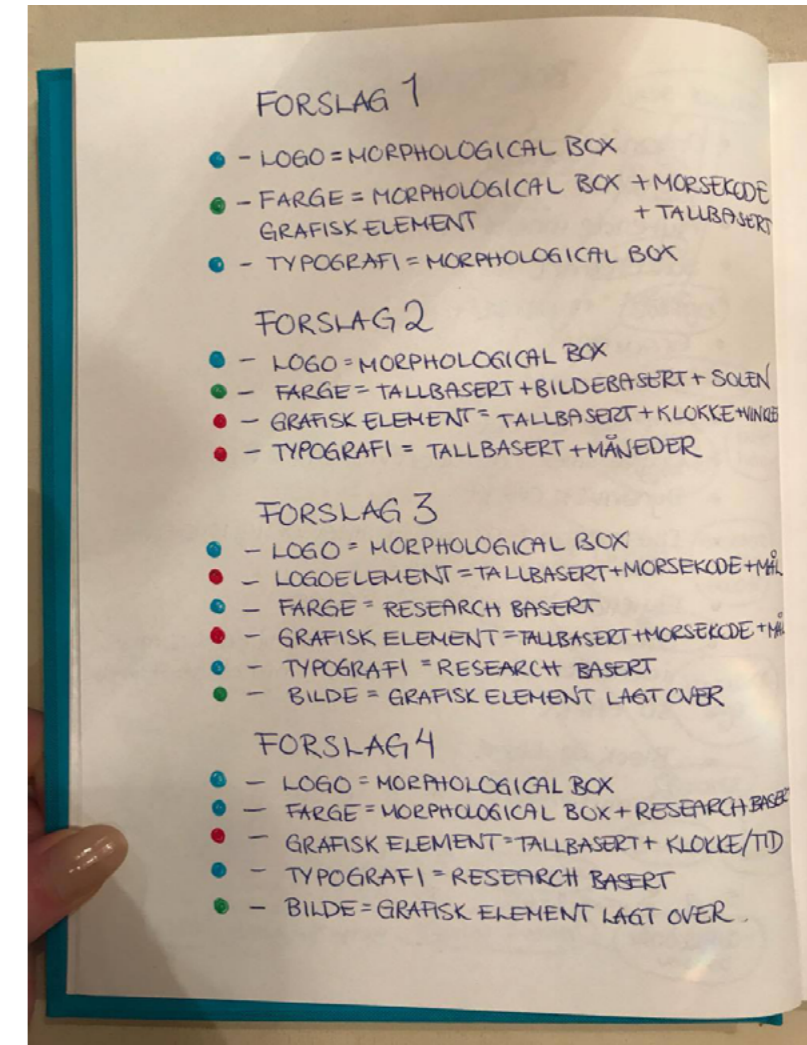 FORSLAG 1
- LOGO = MORPHOLOGICAL BOX
- FARGE = MORPHOLOGICAL BOX + MORSEKODE
GRAFISK ELEMENT + TALLBASERT
- TYPOGRAFI = MORPHOLOGICAL BOX
FORSLAG 2
- LOGO = MORPHOLOGICAL BOX
- FARGE = TALLBASERT + BILDEBASERT + SOLEN
- GRAFISK ELEMENT = TALLBASERT + KLOKKE + VINKLER
- TYPOGRAFI = TALLBASERT + MÅNEDER
FORSLAG 3
- LOGO = MORPHOLOGICAL BOX
- LOGOELEMENT = TALLBASERT + MORSEKODE + MÅL
- FARGE = RESEARCH BASERT
- GRAFISK ELEMENT = TALLBASERT + MORSEKODE + MÅL
- TYPOGRAFI = RESEARCH BASERT
- BILDE = GRAFISK ELEMENT LAGT OVER
FORSLAG 4
- LOGO = MORPHOLOGICAL BOX
- FARGE = MORPHOLOGICAL BOX + RESEARCH BASERT
- GRAFISK ELEMENT = TALLBASERT + KLOKKE/TID
- TYPOGRAFI = RESEARCH BASERT
- BILDE = GRAFISK ELEMENT LAGT OVER.